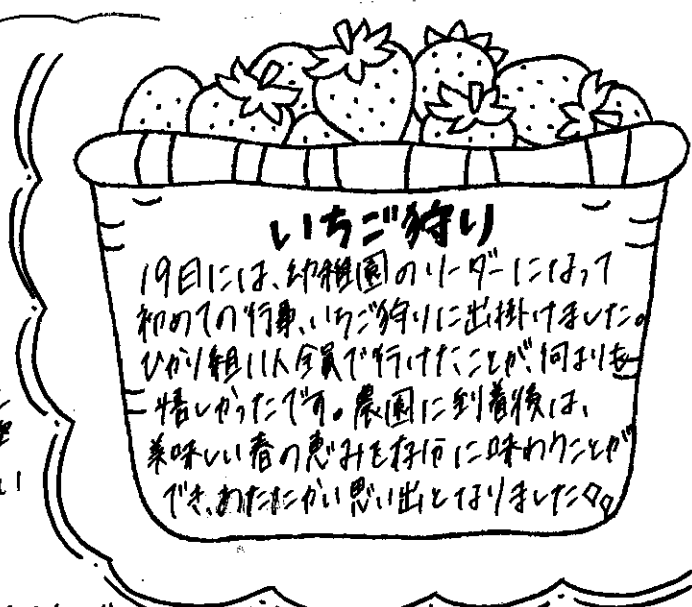 いちご狩り
19日には、幼稚園のリーダーになって
初めての行事、いちご狩りに出掛けました。
ひかり組11人全員で行けたことが、何よりも
嬉しかったです。農園に到着後は、
美味しい春の恵みを存分に味わうことが
でき、あたたかい思い出となりました